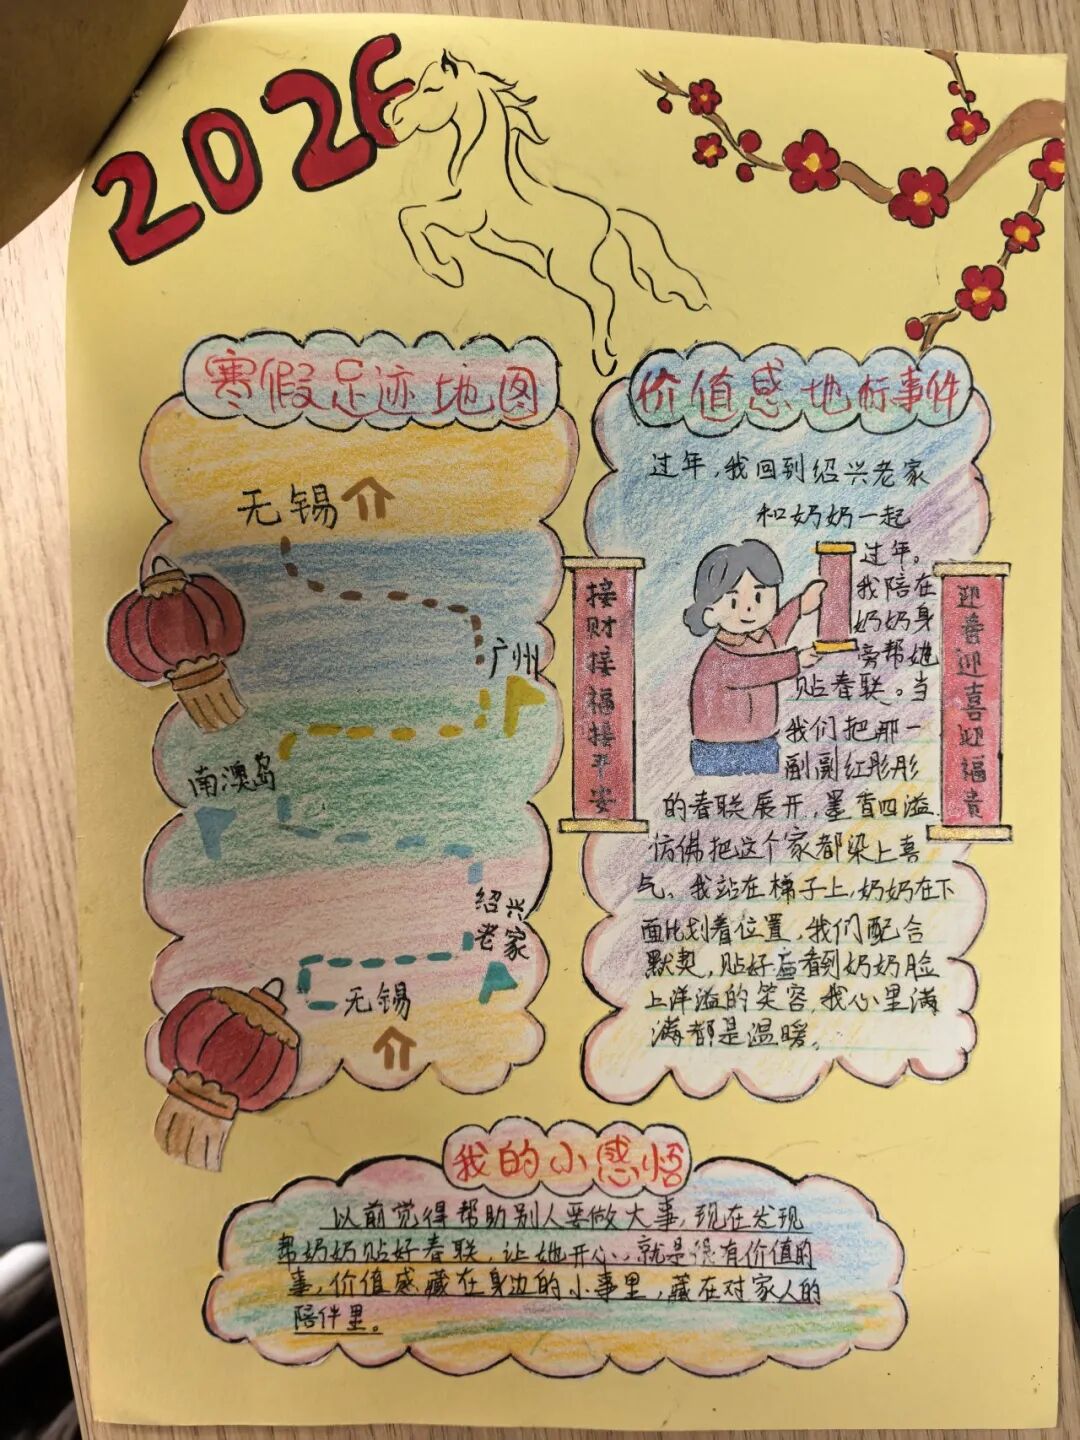 2026
寒假足迹地图
无锡
广州
南澳岛
绍兴
老家
无锡
价值感地标事件
过年,我回到绍兴老家
和奶奶一起
过年。
我陪在
奶奶身
旁帮她
贴春联。当
我们把那一
副副红彤彤
的春联展开,墨香四溢
仿佛把这个家都染上喜
气。我站在梯子上,奶奶在下
面比划着位置,我们配合
默契,贴好后看到奶奶脸
上洋溢的笑容,我心里满
满都是温暖。
接财接福接平安
迎春迎喜迎福贵
我的小感悟
以前觉得帮助别人要做大事,现在发现
帮奶奶贴好春联,让她开心,就是很有价值的
事,价值感藏在身边的小事里,藏在对家人的
陪伴里。